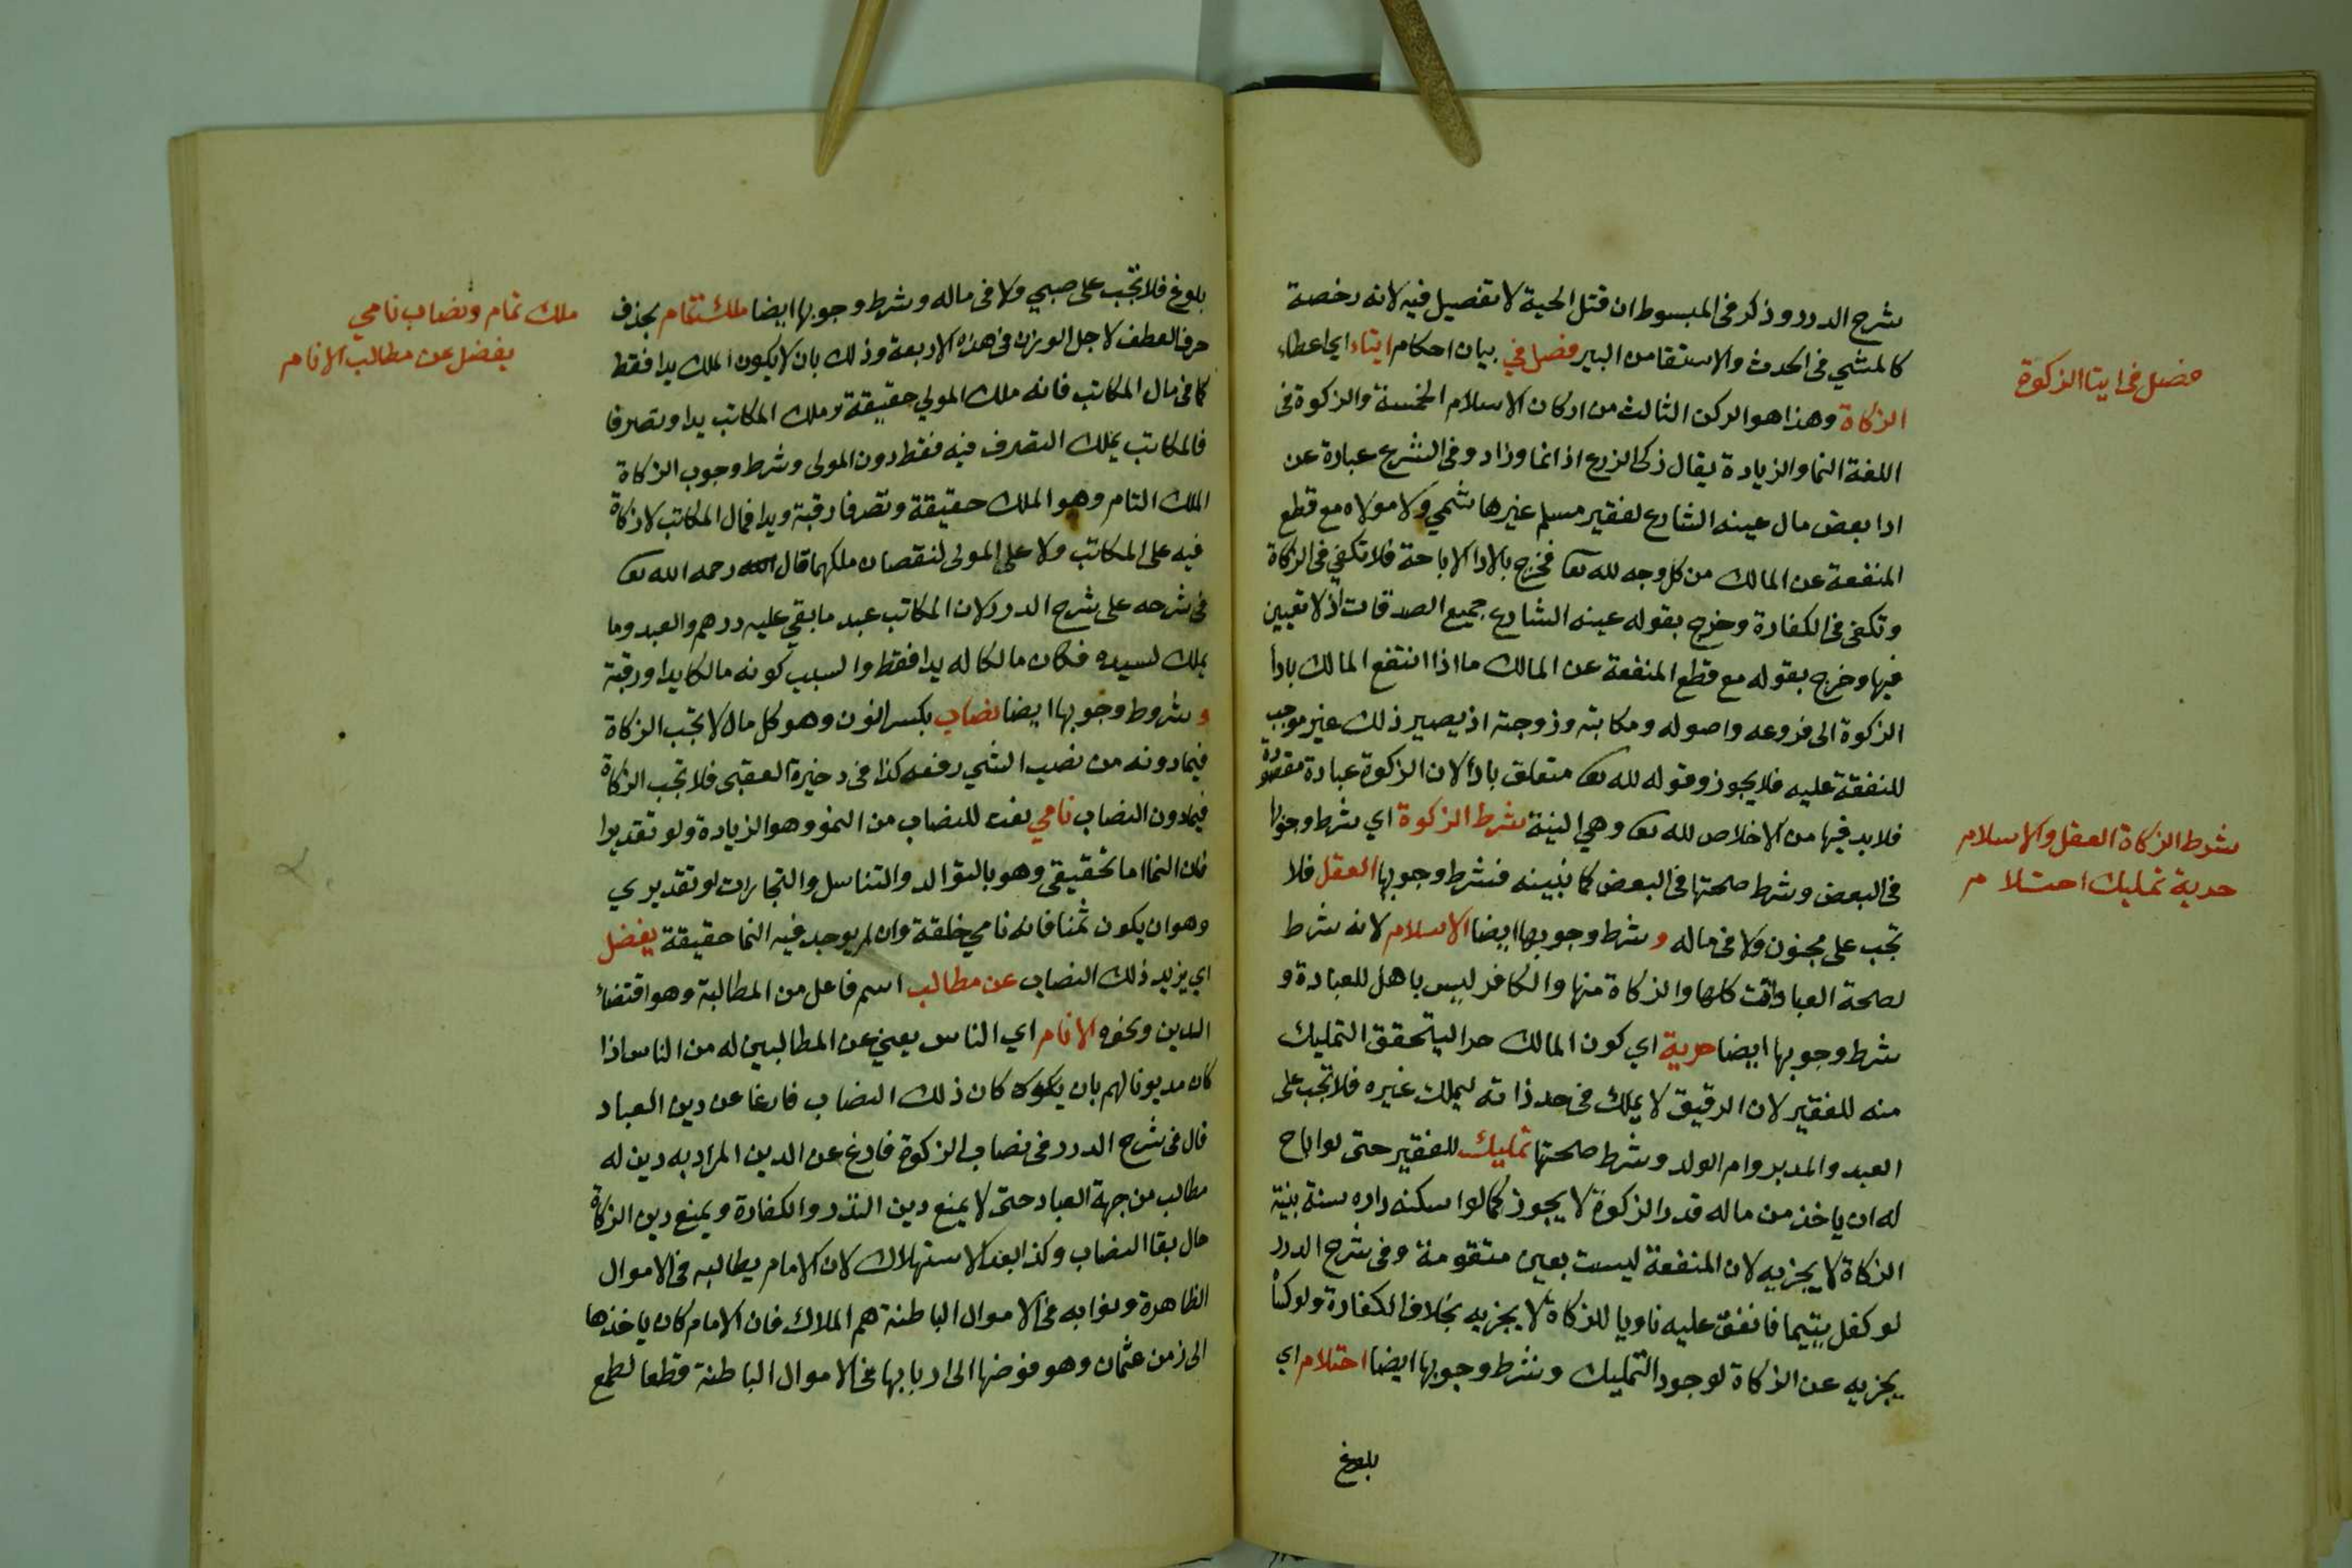 شرح الدرر وذكر في المبسوط ان قتل الحية لا تفصيل فيه لانه رخصة
كالمشي في الحدث والاستقا من البير فصل في بيان احكام ايتاء اي اعطاء
فصل في ايتا الزكوة
الزكاة وهذا هو الركن الثالث من اركان الاسلام الخمسة والزكوة في
اللغة النما والزيادة يقال زكى الزرع اذا نما وزاد وفي الشرع عبارة عن
ادا بعض مال عينه الشارع لفقير مسلم غير هاشمي ولا مولاه مع قطع
المنفعة عن المالك من كل وجه لله تعا فخرج بالادا الاباحة فلا تكفي في الزكاة
وتكفي في الكفارة وخرج بقوله عينه الشارع جميع الصدقات اذ لا تعيين
فيها وخرج بقوله مع قطع المنفعة عن المالك ما اذا انتفع المالك بادا
الزكوة الى فروعه واصوله ومكاتبه وزوجته اذ يصير ذلك غير موجب
للنفقة عليه فلا يجوز وقوله لله تعا متعلق بادا لان الزكوة عبادة مقصودة
فلا بد فيها من الاخلاص لله تعا وهي النية شرط الزكوة اي شرط وجوبها
شرط الزكاة العقل والاسلام
حرية تمليك احتلام
في البعض وشرط صحتها في البعض كما نبينه فشرط وجوبها العقل فلا
تجب على مجنون ولا في ماله وشرط وجوبها ايضا الاسلام لانه شرط
لصحة العبادات كلها والزكاة منها والكافر ليس باهل للعبادة و
شرط وجوبها ايضا حرية اي كون المالك حرا ليتحقق التمليك
منه للفقير لان الرقيق لا يملك في حد ذاته ليملك غيره فلا تجب على
العبد والمدبر وام الولد وشرط صحتها تمليك للفقير حتى لو اباح
له ان ياخذ من ماله قدر الزكوة لا يجوز كما لو اسكنه داره سنة بنية
الزكاة لا يجزيه لان المنفعة ليست بعين متقومة وفي شرح الدرر
لو كفل يتيما فانفق عليه ناويا للزكاة لا يجزيه بخلاف الكفارة ولو كسا
يجزيه عن الزكاة لوجود التمليك وشرط وجوبها ايضا احتلام اي
بلوغ
بلوغ فلا تجب على صبي ولا في ماله وشرط وجوبها ايضا ملك تمام بحذف
ملك تمام ونصاب نامي
يفضل عن مطالب الانام
حرف العطف لاجل الوزن في هذه الاربعة وذلك بان لا يكون الملك يدا فقط
كما في مال المكاتب فانه ملك المولي حقيقة وملك المكاتب يدا وتصرفا
فالمكاتب يملك التصرف فيه فقط دون المولى وشرط وجوب الزكاة
الملك التام وهو الملك حقيقة وتصرفا رقبة ويدا فمال المكاتب لا زكاة
فيه على المكاتب ولا على المولى لنقصان ملكهما قال رحمه الله تعا
في شرحه على شرح الدرر لان المكاتب عبد ما بقي عليه درهم والعبد وما
يملك لسيده فكان مالكا له يدا فقط والسبب كونه مالكا يدا ورقبة
وشروط وجوبها ايضا نصاب بكسر النون وهو كل مال لا تجب الزكاة
فيما دونه من نصب الشي رفعه كذا في ذخيرة العقبى فلا تجب الزكاة
فيما دون النصاب نامي نعت للنصاب من النمو وهو الزيادة ولو تقديرا
فان النما اما تحقيقي وهو بالتوالد والتناسل والتجارات او تقديري
وهو ان يكون ثمنا فانه نامي خلقة وان لم يوجد فيه النما حقيقة يفضل
اي يزيد ذلك النصاب عن مطالب اسم فاعل من المطالبة وهو اقتضاء
الدين ونحوه الانام اي الناس يعني عن المطالبين له من الناس اذا
كان مديونا لهم بان يكون كان ذلك النصاب فارغا عن دين العباد
قال في شرح الدرر في نصاب الزكوة فارغ عن الدين المراد به دين له
مطالب من جهة العباد حتى لا يمنع دين النذر والكفارة ويمنع دين الزكاة
حال بقا النصاب وكذا بعد الاستهلاك لان الامام يطالبه في الاموال
الظاهرة ونوابه في الاموال الباطنة هم الملاك فان الامام كان ياخذها
الى زمن عثمان وهو فوضها الى اربابها في الاموال الباطنة قطعا لطمع